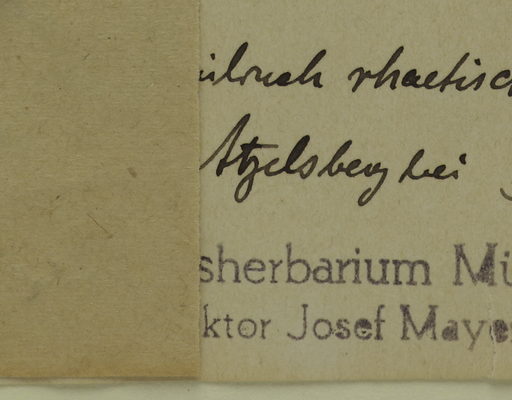 rhaetisc
Atzelsberg bei
sherbarium Mü
ktor Josef Maye